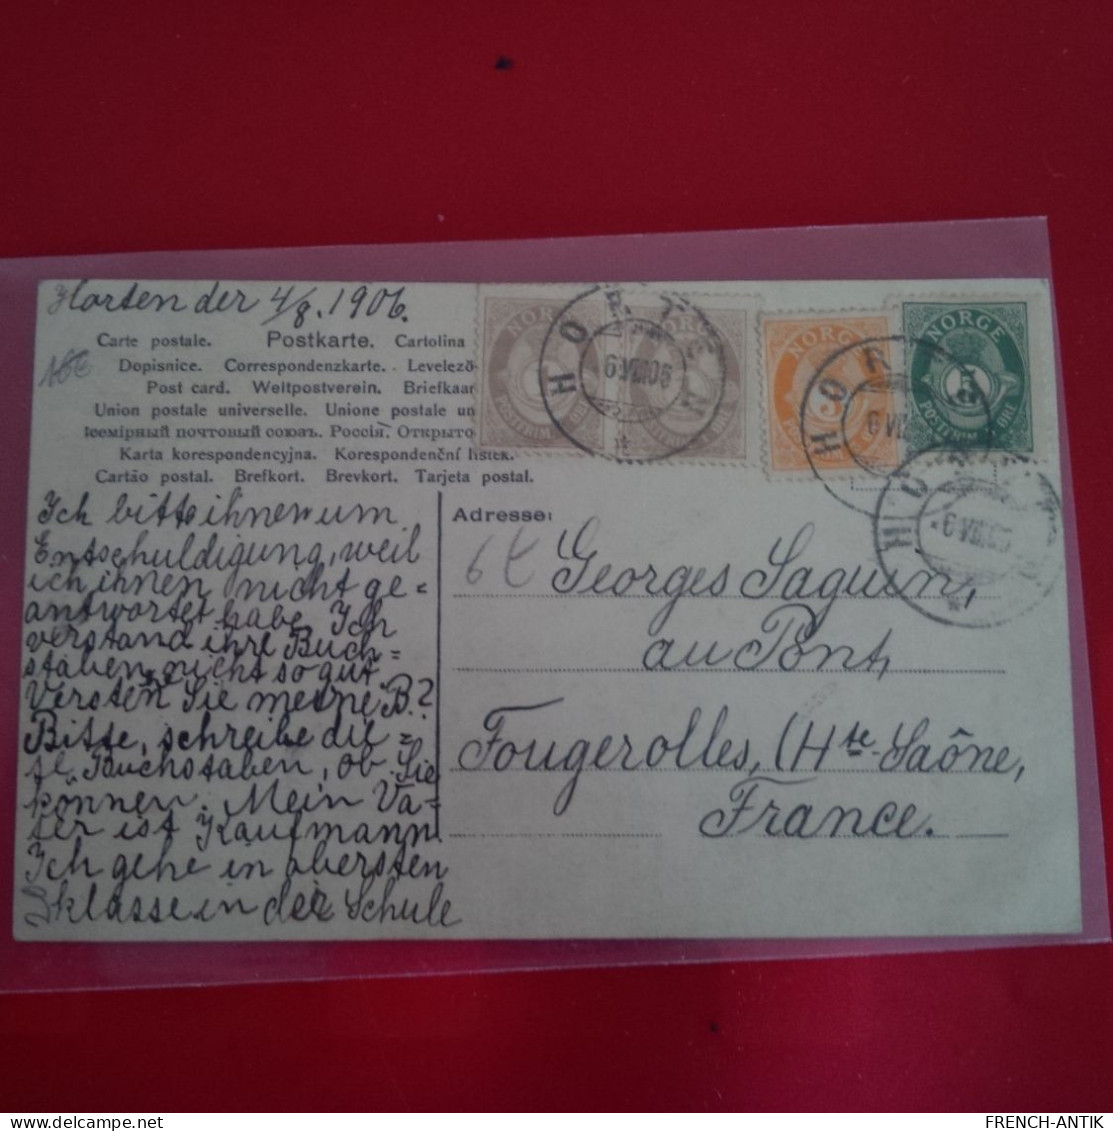 Horten der 4/8. 1906.
Carte postale. Postkarte. Cartolina
Dopisnice. Correspondenzkarte. Levelező
Post card. Weltpostverein. Briefkaar
Union postale universelle. Unione postale un
Всемірный почтовый союзъ. Россія. Открыто
Karta korespondencyjna. Korespondenční lístek.
Cartão postal. Brefkort. Brevkort. Tarjeta postal.
NORGE
POSTFRIM
NORGE
POSTFRIM
NORGE 3
POSTFRIM
NORGE 5
POSTFRIM 5 ØRE
HORTEN
6 VIII 06
HORTEN
6 VIII
HORTEN
6 VIII 06
Ich bitte ihnen um
Entschuldigung, weil
ich ihnen nicht ge=
antwortet habe. Ich
verstand ihre Buch=
staben nicht so gut.
Versten Sie meine B.?
Bitte, schreibe die=
se Buchstaben, ob Sie
können. Mein Va=
ter ist Kaufmann.
Ich gehe in obersten
klasse in der Schule
Adresse:
Georges Saguin,
au Pont,
Fougerolles, (Hte-Saône,
France.
FRENCH-ANTIK